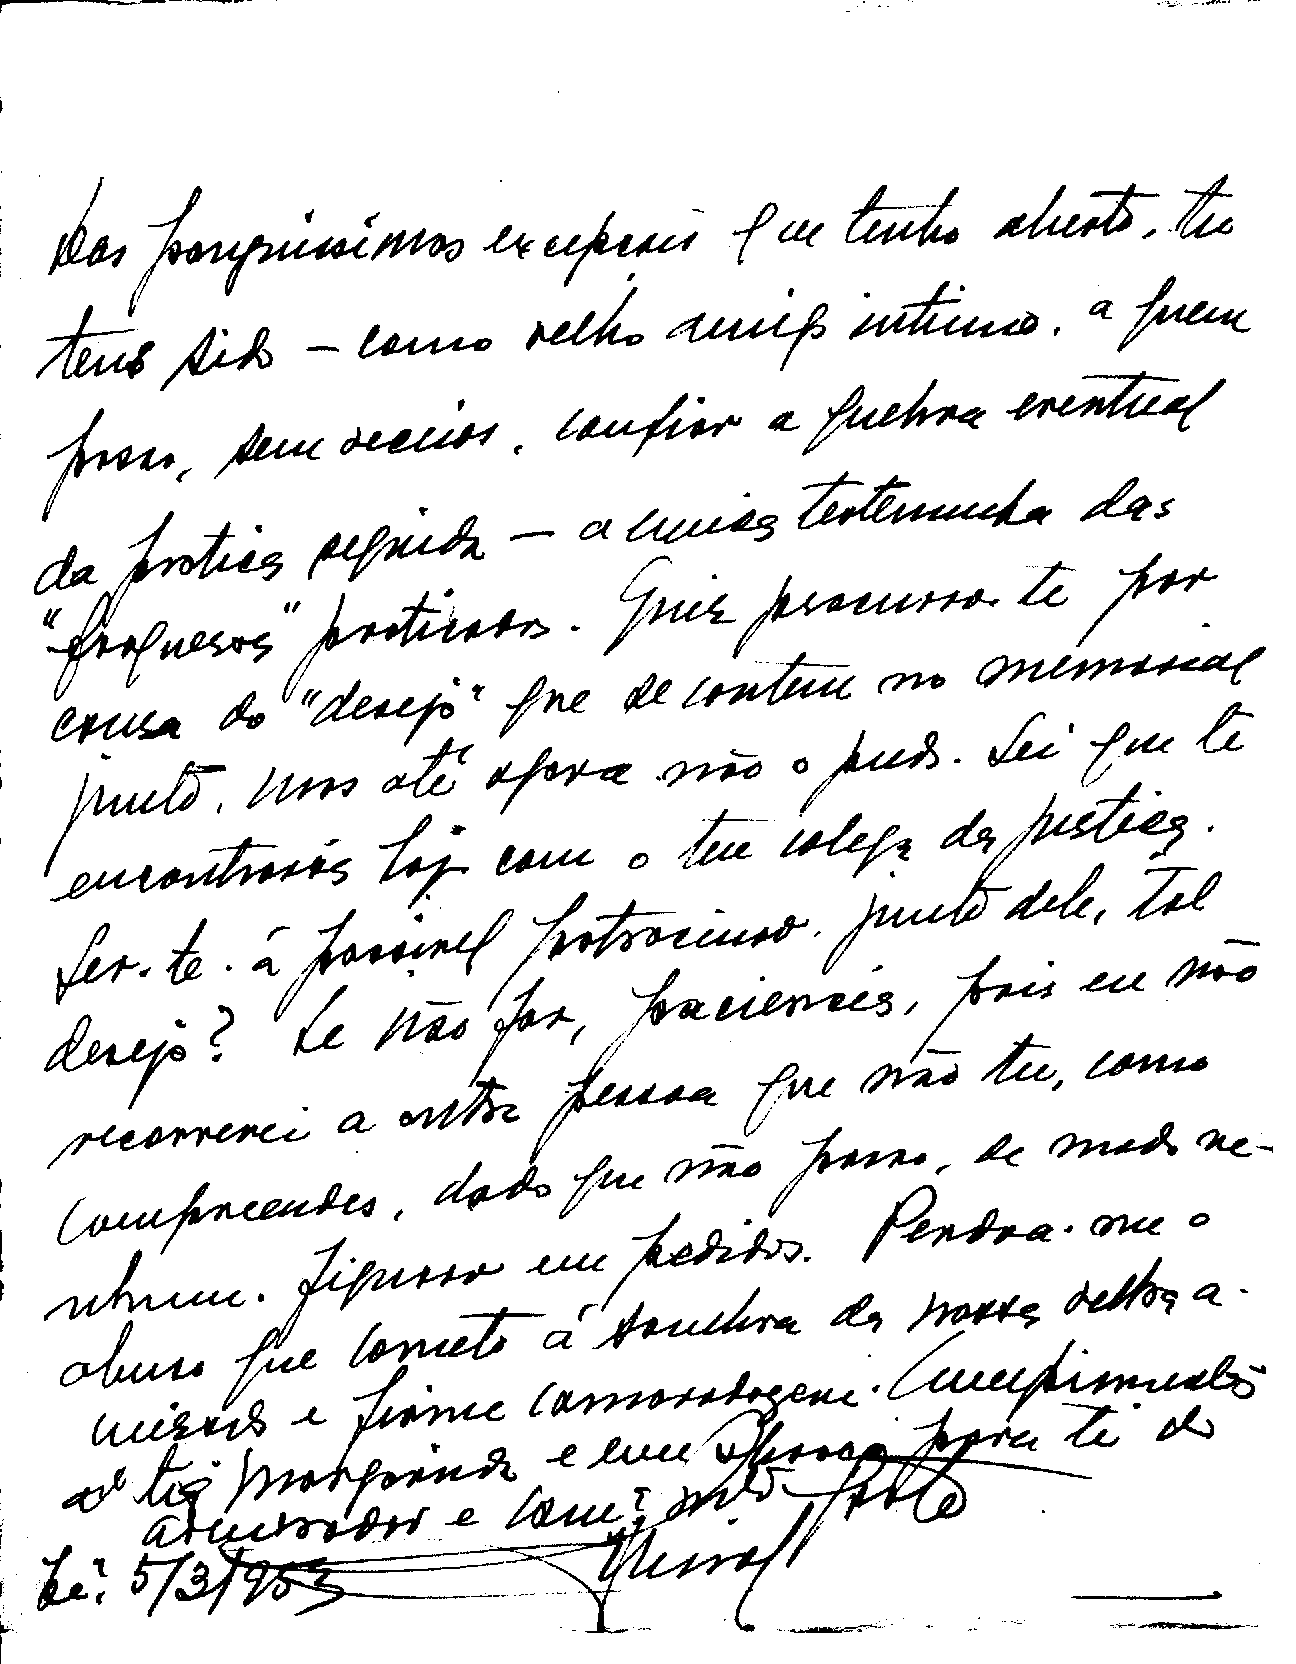 Das pouquíssimas excepções que tenho aberto, tu
tens sido – como velho amigo intimo, a quem
posso, sem receios, confiar a quebra eventual
da pratica seguida – a unica testemunha das
"fraquesas" praticadas. Quiz procurar-te por
causa do "desejo" que se contem no memorial
junto, mas até agora não o pude. Sei que te
encontrarás hoje com o teu colega da justiça.
Ser-te-á possivel patrocinar, junto dele, tal
desejo? Se não for, paciencia, pois eu não
recorrerei a outra pessoa que não tu, como
compreendes, dado que não posso, de modo ne-
nhum, figurar em pedidos. Perdoa-me o
abuso que cometo á sombra da nossa velha a-
misade e firme camaradagem. Cumprimentos
á tia Margarida e um abraço para ti do
admirador e cam. mto grato
5/3/953